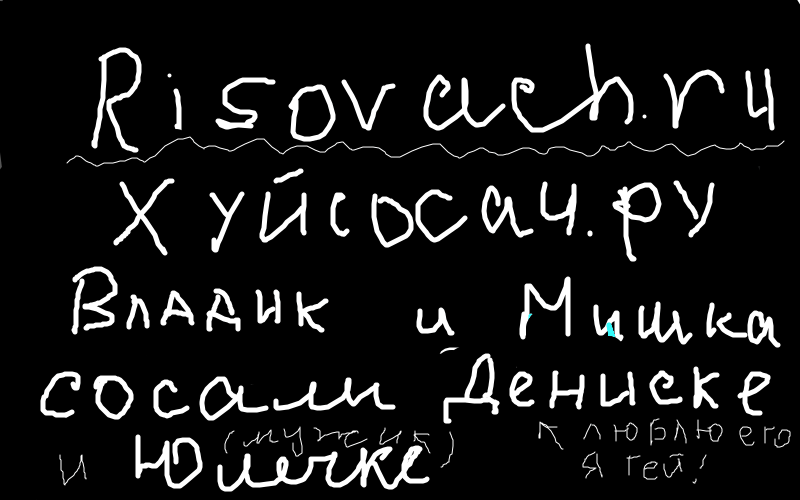 Risovach.ru
Хуйсосач.ру
Владик и Мишка
сосали Дениске
(мужик) ↖ люблю его
и Юлечке я гей!